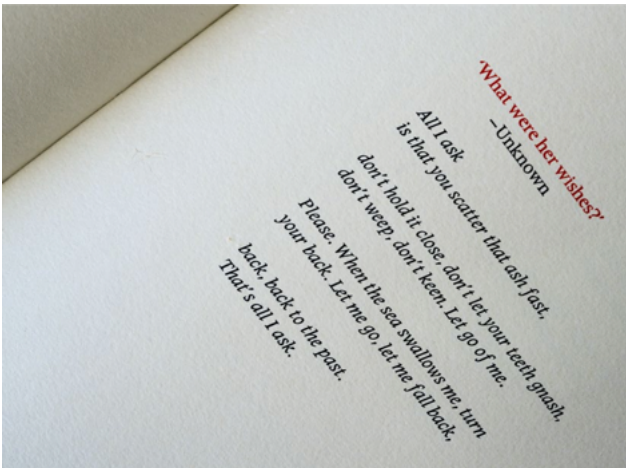 ‘What were her wishes?’
–Unknown
All I ask
is that you scatter that ash fast,
don't hold it close, don't let your teeth gnash,
don't weep, don't keen. Let go of me.
Please. When the sea swallows me, turn
your back. Let me go, let me fall back,
back, back to the past.
That's all I ask.